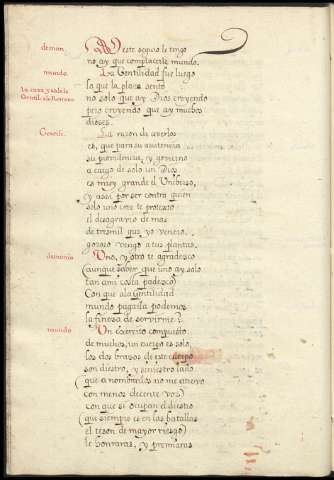 demon. De este seguro le tengo
no ay que complacerle mundo.
mundo. La Gentilidad fue luego
la que la plaza sentò
no solo que ay Dios creyendo
pero creyendo que ay muchos
dioses.
Gentili. La razon de averlos
es, que para su asistencia
su providencia, y govierno
a cargo de solo un Dios
es muy grande el Universo,
y assi por ser contra quien
solo uno cree te protesto
el desagravio de mas
de tresmil que yo venero.
gozoso vengo a tus plantas.
demonio Uno, y otro te agradesco
(aunque saber que uno ay solo
tan a mi costa padesco)
Con que a la Gentilidad
mundo pagarla podemos
la fineza de servirme?
mundo Un Exercito compuesto
de muchos, un cuerpo es solo
los dos brazos de este cuerpo
son diestro, y siniestro lado
(que a nombrarlos no me atrevo
con menos decente voz)
con que si ocupan el diestro
(que siempre es en las batallas
el teson de mayor riesgo)
le honraras, y premiaras